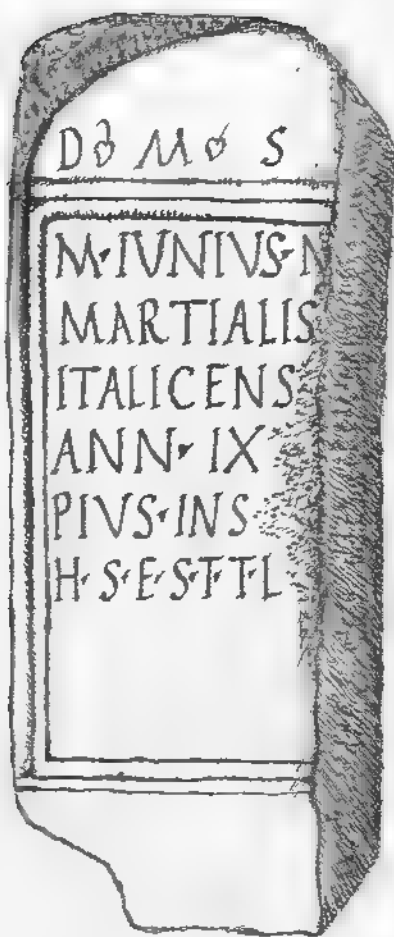 D M S
M·IVNIVS·
MARTIALIS
ITALICENS
ANN·IX
PIVS·INS
H·S·E·S·T·T·L